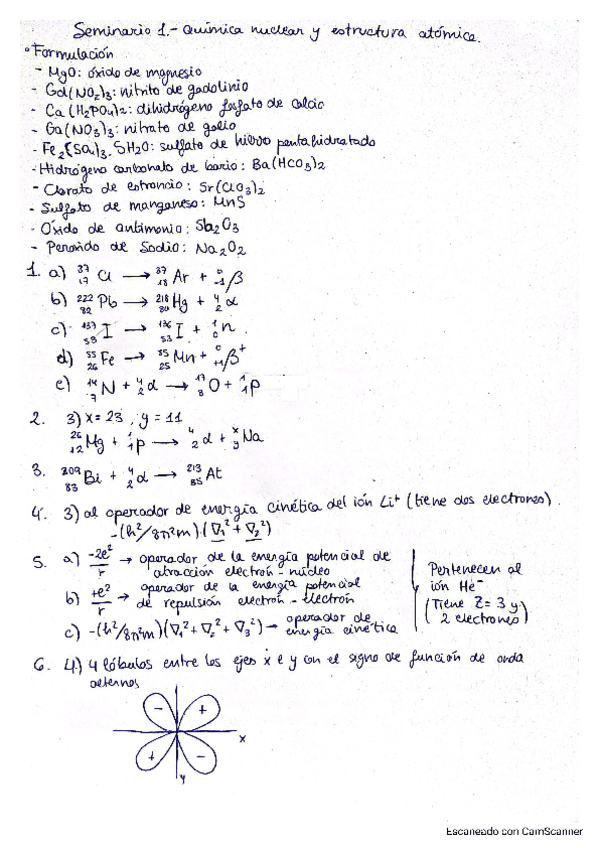 Seminario 1.- Química nuclear y estructura atómica.
° Formulación
- MgO: óxido de magnesio
- Gd(NO₂)₃: nitrito de gadolinio
- Ca(H₂PO₄)₂: dihidrógeno fosfato de calcio
- Ga(NO₃)₃: nitrato de galio
- Fe₂(SO₄)₃.5H₂O: sulfato de hierro pentahidratado
- Hidrógeno carbonato de bario: Ba(HCO₃)₂
- Clorato de estroncio: Sr(ClO₃)₂
- Sulfato de manganeso: MnS
- Óxido de antimonio: Sb₂O₃
- Peróxido de Sodio: Na₂O₂
1. a) ³⁷₁₇Cl → ³⁷₁₈Ar + ⁰₋₁β
b) ²²²₈₂Pb → ²¹⁸₈₀Hg + ⁴₂α
c) ¹³⁷₅₃I → ¹³⁶₅₃I + ¹₀n.
d) ⁵⁵₂₆Fe → ⁵⁵₂₅Mn + ⁰₊₁β⁺
e) ¹⁴₇N + ⁴₂α → ¹⁷₈O + ¹₁p
2. 3) x = 23, y = 11
²⁶₁₂Mg + ¹₁p → ⁴₂α + ˣᵧNa
3. ²⁰⁹₈₃Bi + ⁴₂α → ²¹³₈₅At
4. 3) al operador de energía cinética del ión Li⁺ (tiene dos electrones).
-(h²/8π²m)(∇₁² + ∇₂²)
5. a) -2e²/r → operador de la energía potencial de
atracción electrón-núcleo
b) +e²/r → operador de la energía potencial
de repulsión electrón-electrón
c) -(h²/8π²m)(∇₁² + ∇₂² + ∇₃²) → operador de
energía cinética
Pertenecen al
ión He⁻
(Tiene Z=3 y
2 electrones)
6. 4) 4 lóbulos entre los ejes x e y con el signo de función de onda
alternos
- +
x
+ -
y
Escaneado con CamScanner